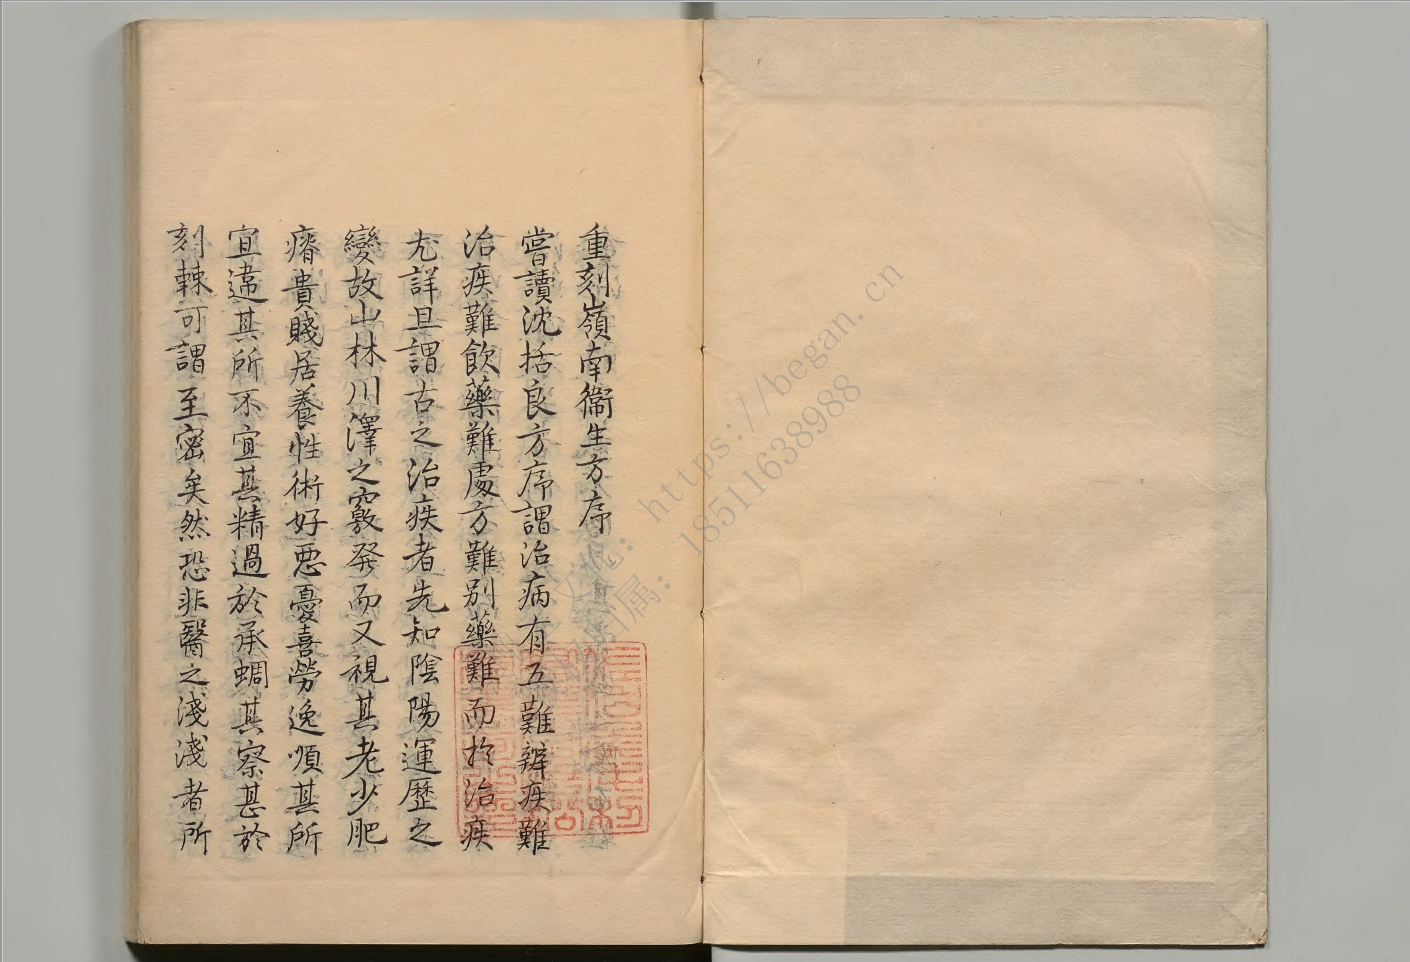 重刻嶺南衞生方序
嘗讀沈括良方序謂治病有五難辨疾難
治疾難飲藥難處方難別藥難而於治疾
尤詳且謂古之治疾者先知陰陽運歷之
變故山林川澤之竅發而又視其老少肥
瘠貴賤居養性術好惡憂喜勞逸順其所
宜違其所不宜其精過於承蜩其察甚於
刻棘可謂至密矣然恐非醫之淺淺者所
https://began.cn
18511638988